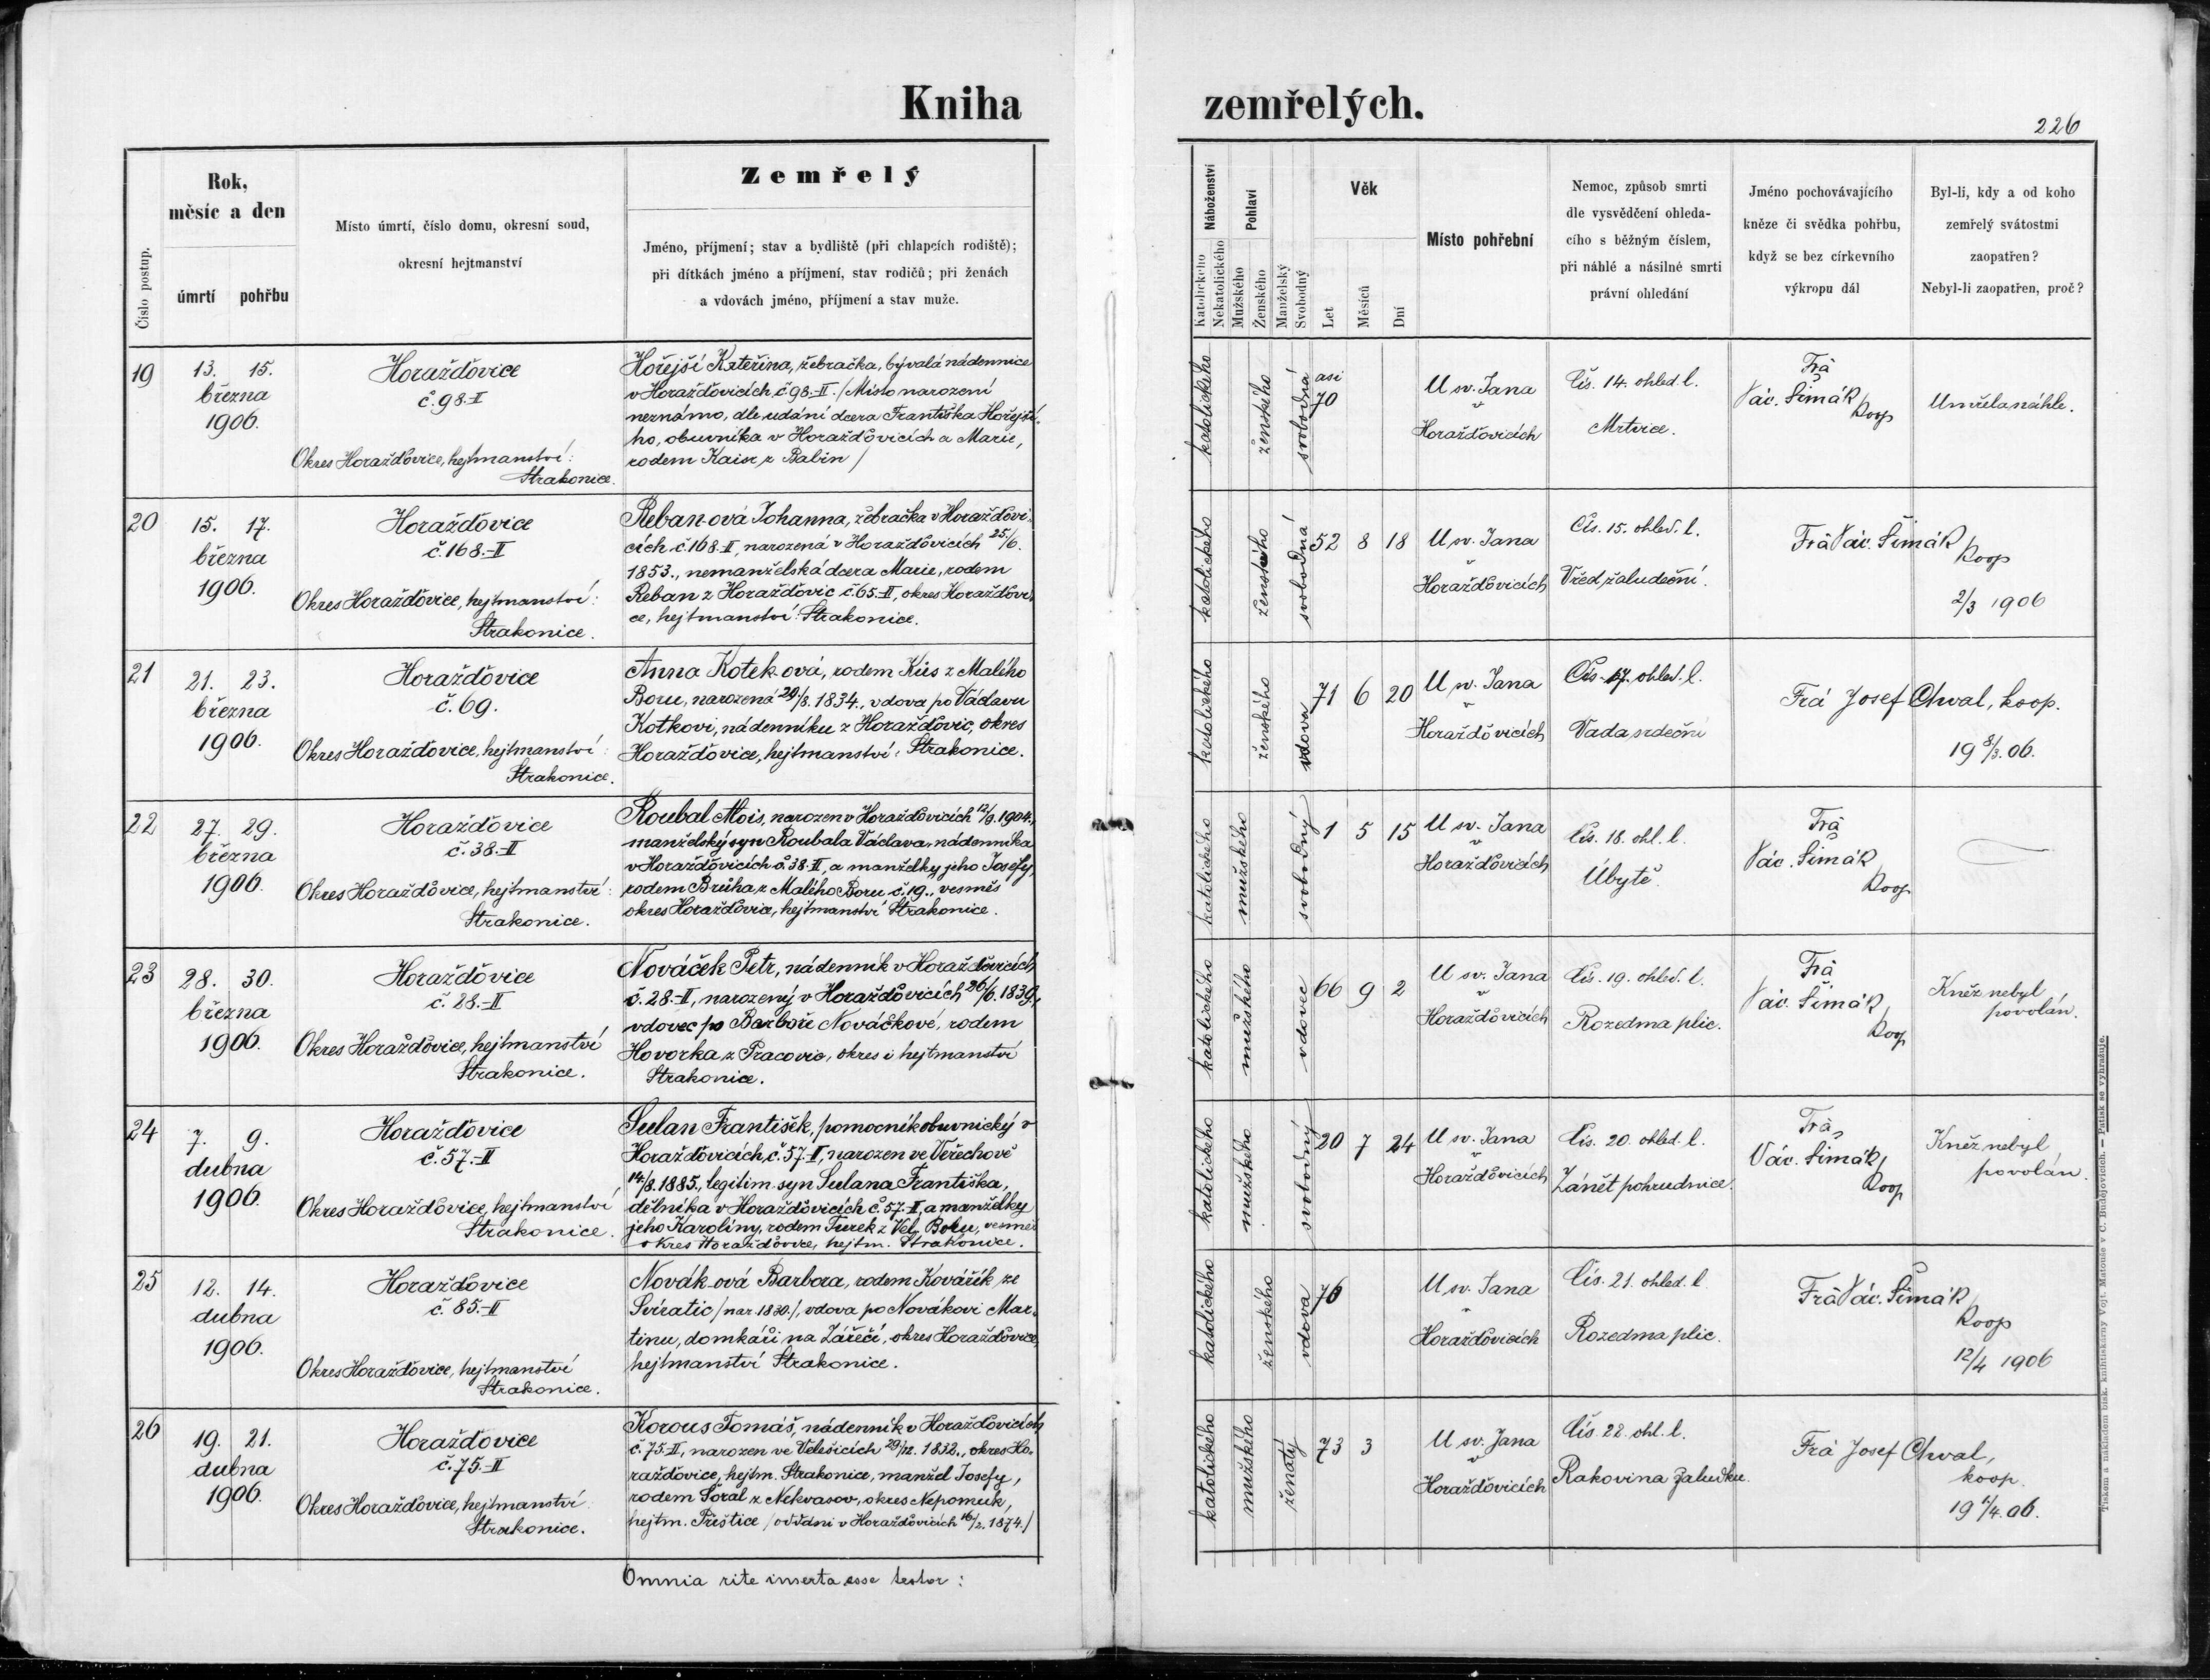 Kniha
zemřelých.
226
Číslo postup.
Rok,
měsíc a den
úmrtí pohřbu
Místo úmrtí, číslo domu, okresní soud,
okresní hejtmanství
Zemřelý
Jméno, příjmení; stav a bydliště (při chlapcích rodiště);
při dítkách jméno a příjmení, stav rodičů; při ženách
a vdovách jméno, příjmení a stav muže.
Náboženství
Katolického
Nekatolického
Pohlaví
Mužského
Ženského
Manželský
Svobodný
Věk
Let
Měsíců
Dní
Místo pohřební
Nemoc, způsob smrti
dle vysvědčení ohleda-
cího s běžným číslem,
při náhlé a násilné smrti
právní ohledání
Jméno pochovávajícího
kněze či svědka pohřbu,
když se bez církevního
výkropu dál
Byl-li, kdy a od koho
zemřelý svátostmi
zaopatřen?
Nebyl-li zaopatřen, proč?
19
13. 15.
března
1906.
Horažďovice
č. 98-II
Okres Horažďovice, hejtmanství:
Strakonice.
Hořejší Kateřina, žebračka, bývalá nádennice
v Horažďovicích č. 98-II. /Místo narození
neznámo, dle udání dcera Františka Hořejší-
ho, obuvníka v Horažďovicích a Marie,
rodem Kaisr z Babin/
katolického
ženského
svobodná
asi
70
U sv. Jana
v
Horažďovicích
Čís. 14. ohled. l.
Mrtvice.
Frá
Vác. Šimák
koop
Umřela náhle.
20
15. 17.
března
1906.
Horažďovice
č. 168.-II
Okres Horažďovice, hejtmanství:
Strakonice.
Řeban-ová Johanna, žebračka v Horažďovi-
cích č. 168-II, narozená v Horažďovicích 25/6.
1853., nemanželská dcera Marie, rodem
Řeban z Horažďovic č. 65-II, okres Horažďovi-
ce, hejtmanství: Strakonice.
katolického
ženského
svobodná
52 8 18
U sv. Jana
v
Horažďovicích
Čís. 15. ohled. l.
Vřed žaludeční.
Frá Vác. Šimák
koop
2/3 1906
21
21. 23.
března
1906.
Horažďovice
č. 69.
Okres Horažďovice, hejtmanství:
Strakonice.
Anna Kotek-ová, rodem Kůs z Malého
Boru, narozená /8. 1834., vdova po Václavu
Kotkovi, nádenníku z Horažďovic, okres
Horažďovice, hejtmanství: Strakonice.
katolického
ženského
vdova
71 6 20
U sv. Jana
v
Horažďovicích
Čís. 17. ohled. l.
Vada srdeční
Frá Josef Chval, koop.
19 8/3. 06.
22
27. 29.
března
1906.
Horažďovice
č. 38.-II
Okres Horažďovice, hejtmanství:
Strakonice.
Roubal Alois, narozen v Horažďovicích 12/9. 1904.,
manželský syn Roubala Václava, nádenníka
v Horažďovicích č. 38-II, a manželky jeho Josefy,
rodem Brůha z Malého Boru č. 19., vesměs
okres Horažďovice, hejtmanství Strakonice.
katolického
mužského
svobodný
1 5 15
U sv. Jana
v
Horažďovicích
Čís. 18. ohl. l.
Úbytě.
Frá
Vác. Šimák
koop
23
28. 30.
března
1906.
Horažďovice
č. 28.-II
Okres Horažďovice, hejtmanství
Strakonice.
Nováček Petr, nádenník v Horažďovicích
č. 28-II, narozený v Horažďovicích 26/6. 1839.,
vdovec po Barboře Nováčkové, rodem
Hovorka z Pracovic, okres i hejtmanství
Strakonice.
katolického
mužského
vdovec
66 9 2
U sv. Jana
v
Horažďovicích
Čís. 19. ohled. l.
Rozedma plic.
Frá
Vác. Šimák
koop
Kněz nebyl
povolán.
24
7. 9.
dubna
1906.
Horažďovice
č. 57.-II
Okres Horažďovice, hejtmanství
Strakonice.
Sulan František, pomocník obuvnický v
Horažďovicích, č. 57-II, narozen ve Veřechově
14/8. 1885., legitim. syn Sulana Františka,
dělníka v Horažďovicích č. 57-II, a manželky
jeho Karolíny, rodem Turek z Vel. Boru, vesměs
okres Horažďovice, hejtm. Strakonice.
katolického
mužského
svobodný
20 7 24
U sv. Jana
v
Horažďovicích
Čís. 20. ohled. l.
Zánět pohrudnice.
Frá
Vác. Šimák,
koop
Kněz nebyl
povolán.
25
12. 14.
dubna
1906.
Horažďovice
č. 85.-II
Okres Horažďovice, hejtmanství
Strakonice.
Novák-ová Barbora, rodem Kovářík ze
Svíratic /nar. 1830./, vdova po Novákovi Mar-
tinu, domkáři na Zářečí, okres Horažďovice,
hejtmanství Strakonice.
katolického
ženského
vdova
76
U sv. Jana
v
Horažďovicích
Čís. 21. ohled. l
Rozedma plic.
Frá Vác. Šimák
koop
12/4 1906
26
19. 21.
dubna
1906.
Horažďovice
č. 75.-II
Okres Horažďovice, hejtmanství
Strakonice.
Korous Tomáš, nádenník v Horažďovicích
č. 75-II, narozen ve Velešicích 29/12. 1832., okres Ho-
ražďovice, hejtm. Strakonice, manžel Josefy,
rodem Šoral z Nekvasov, okres Nepomuk,
hejtm. Přeštice /oddáni v Horažďovicích 16/2. 1874./
katolického
mužského
ženatý
73 3
U sv. Jana
v
Horažďovicích
Čís. 22. ohl. l.
Rakovina žaludku.
Frá Josef Chval,
koop.
19 /4. 06.
Omnia rite inserta esse testor:
Tiskem a nákladem bisk. knihtiskárny Vojt. Matouše v Č. Budějovicích. — Patisk se vyhražuje.